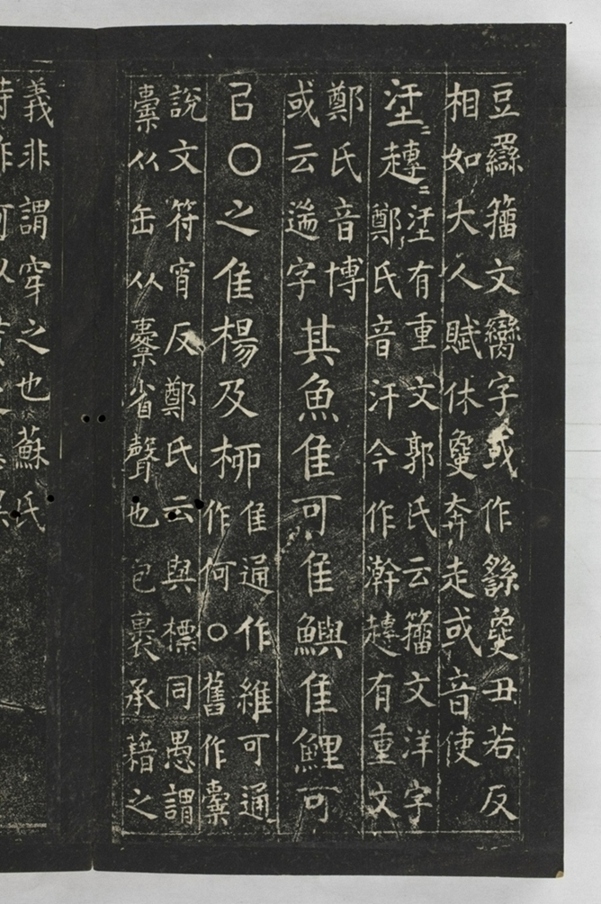 豆籀文字或作㲋丑若反
相如大人賦休㲋奔走或音使
有重文郭氏云籀文洋字
鄭氏音汗今作瀚有重文
鄭氏音博
或云字
其魚隹可隹鱮隹鯉可
㠯〇之隹楊及桺
隹通作維可通
作何〇舊作櫜
說文符宵反鄭氏云與標同愚謂
从缶从省聲也包裹承藉之
義非謂穿之也蘇氏